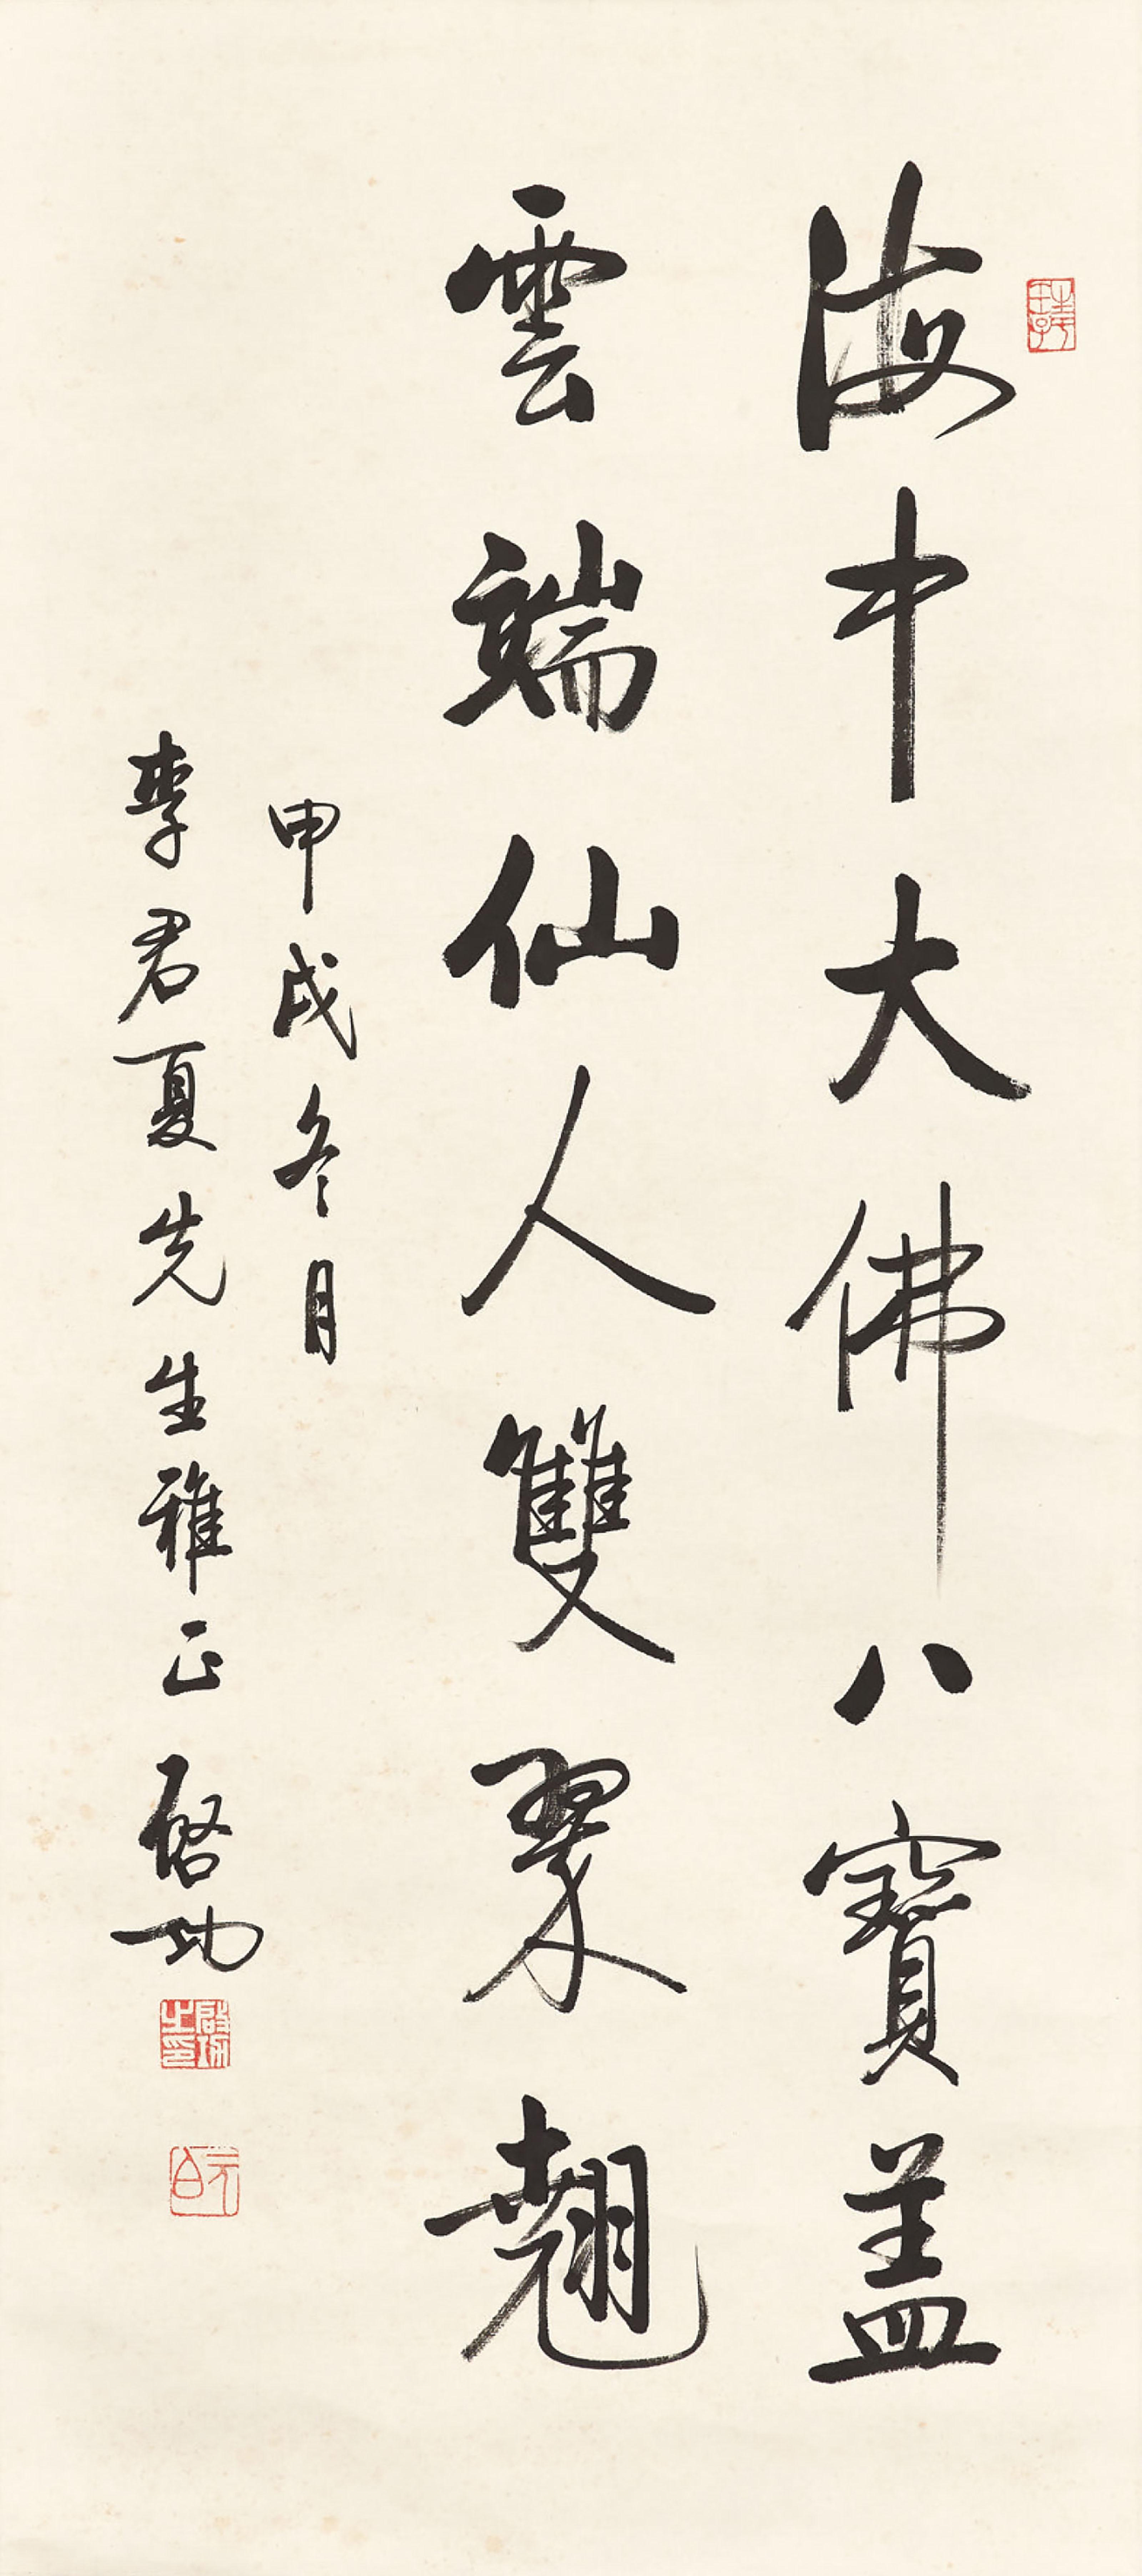 海中大佛八寶蓋
雲端仙人雙翠翹
甲戌冬月
李君夏先生雅正 啓功
啟功之印
元白